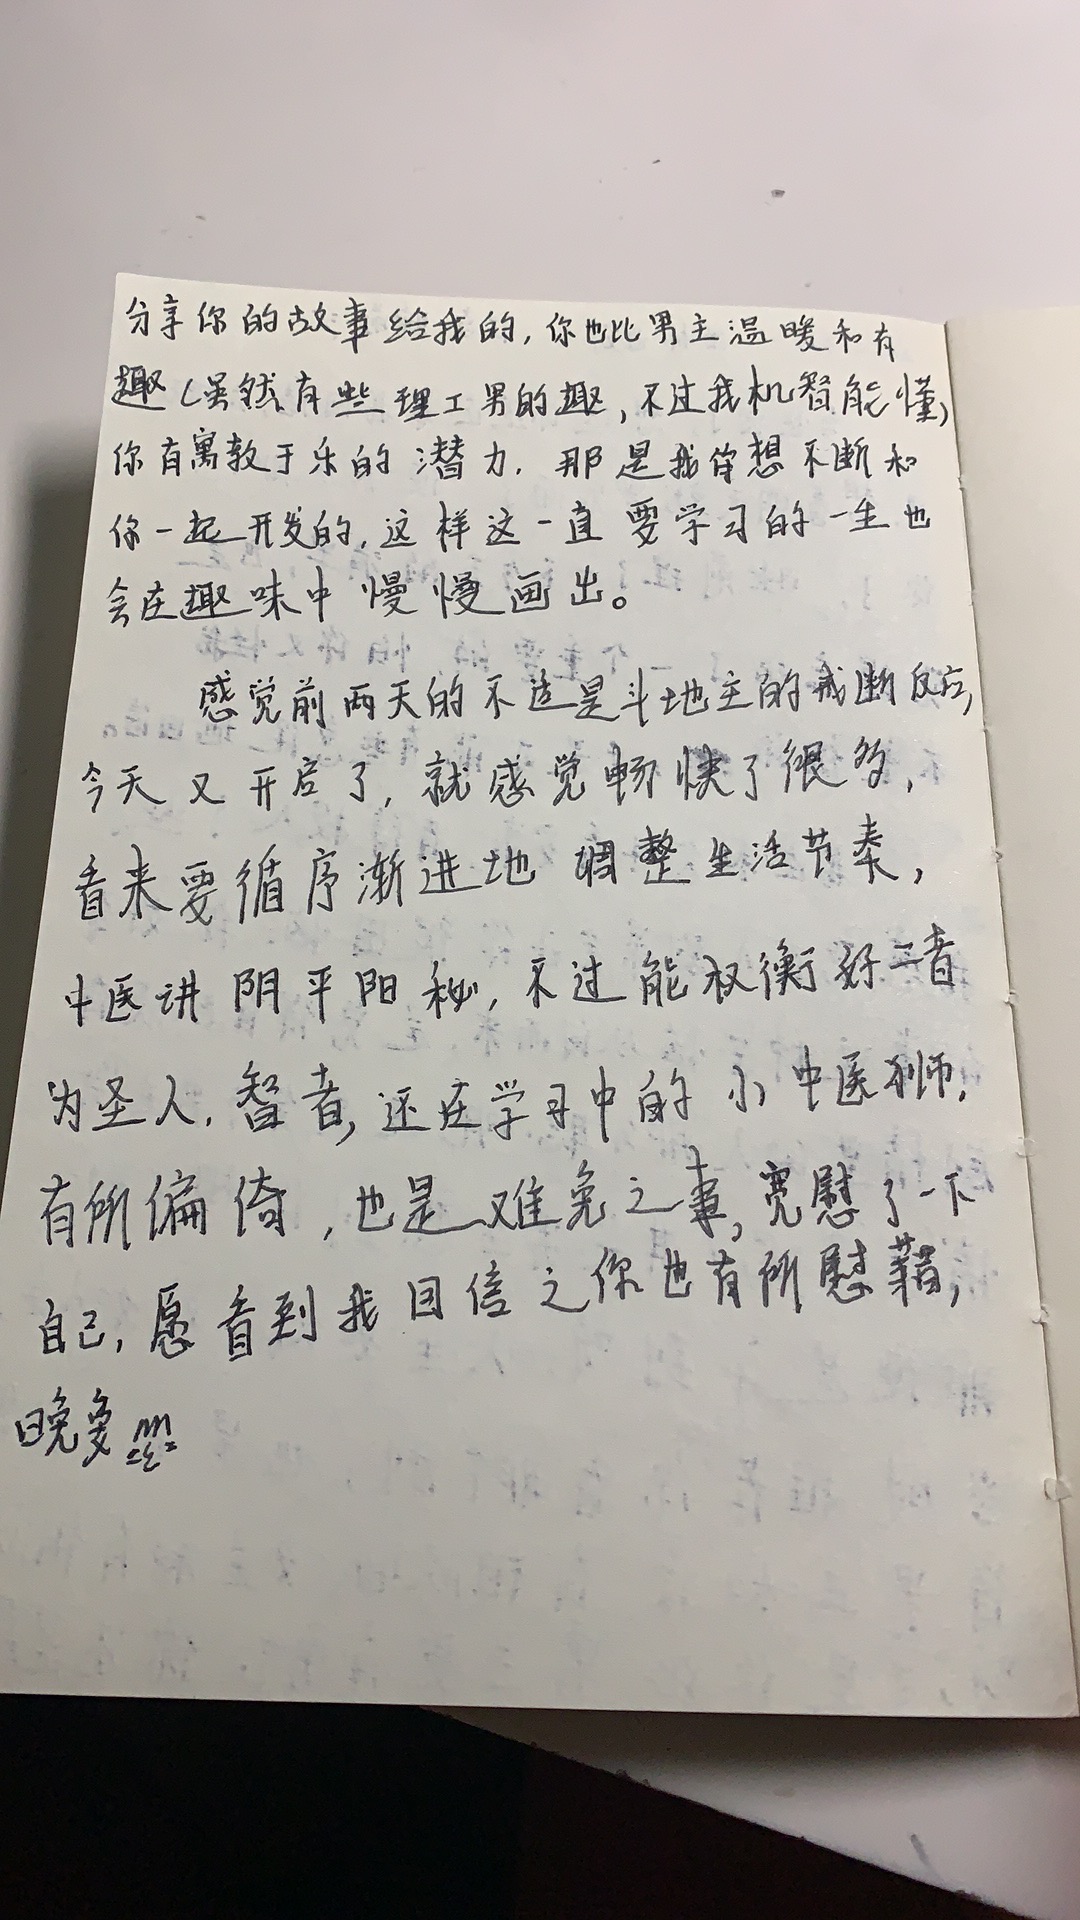 分享你的故事给我的，你也比男主温暖和有
趣（虽然有些理工男的趣，不过我机智能懂）
你有寓教于乐的潜力，那是我伴想不断和
你一起开发的，这样这一直要学习的一生也
会在趣味中慢慢画出。
感觉前两天的不适是斗地主的戒断反应，
今天又开启了，就感觉畅快了很多，
看来要循序渐进地调整生活节奏，
中医讲阴平阳秘，不过能权衡好二者
为圣人，智者，还在学习中的小中医狮，
有所偏倚，也是难免之事，宽慰了一下
自己，愿看到我回信之你也有所慰藉，
晚安